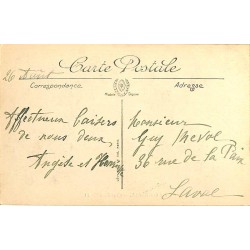 Carte Postale
Correspondance
Adresse
26 Août
Affectueux baisers
de nous deux,
Angèle et
Monsieur
Guy
36 rue de la Paix
Laval